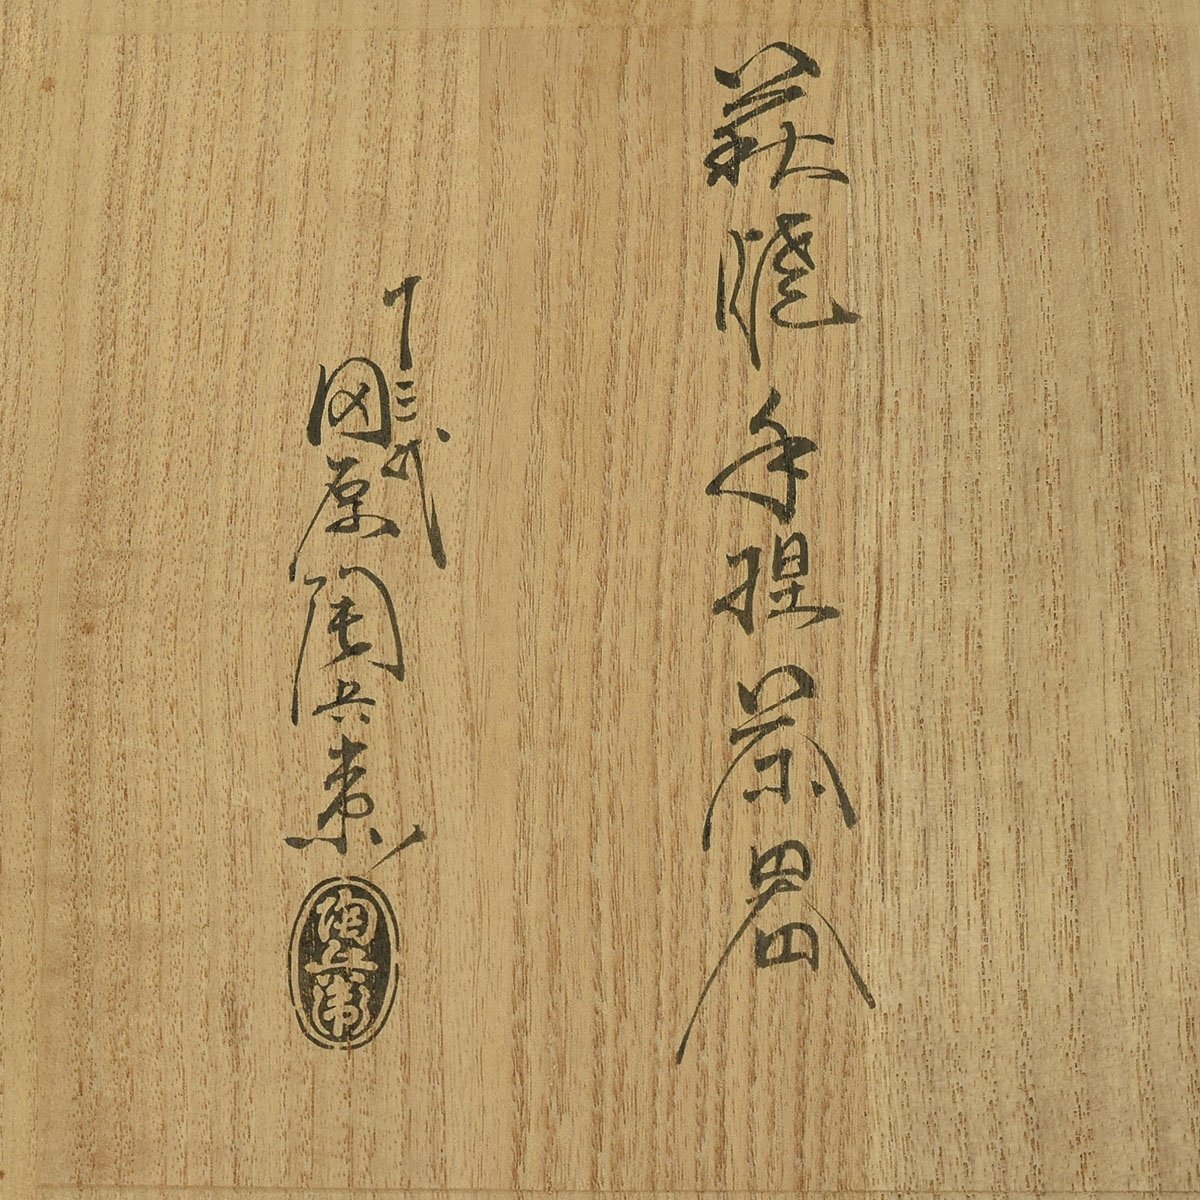 萩焼手捏茶器
十三代
田原陶兵衛
陶兵衛